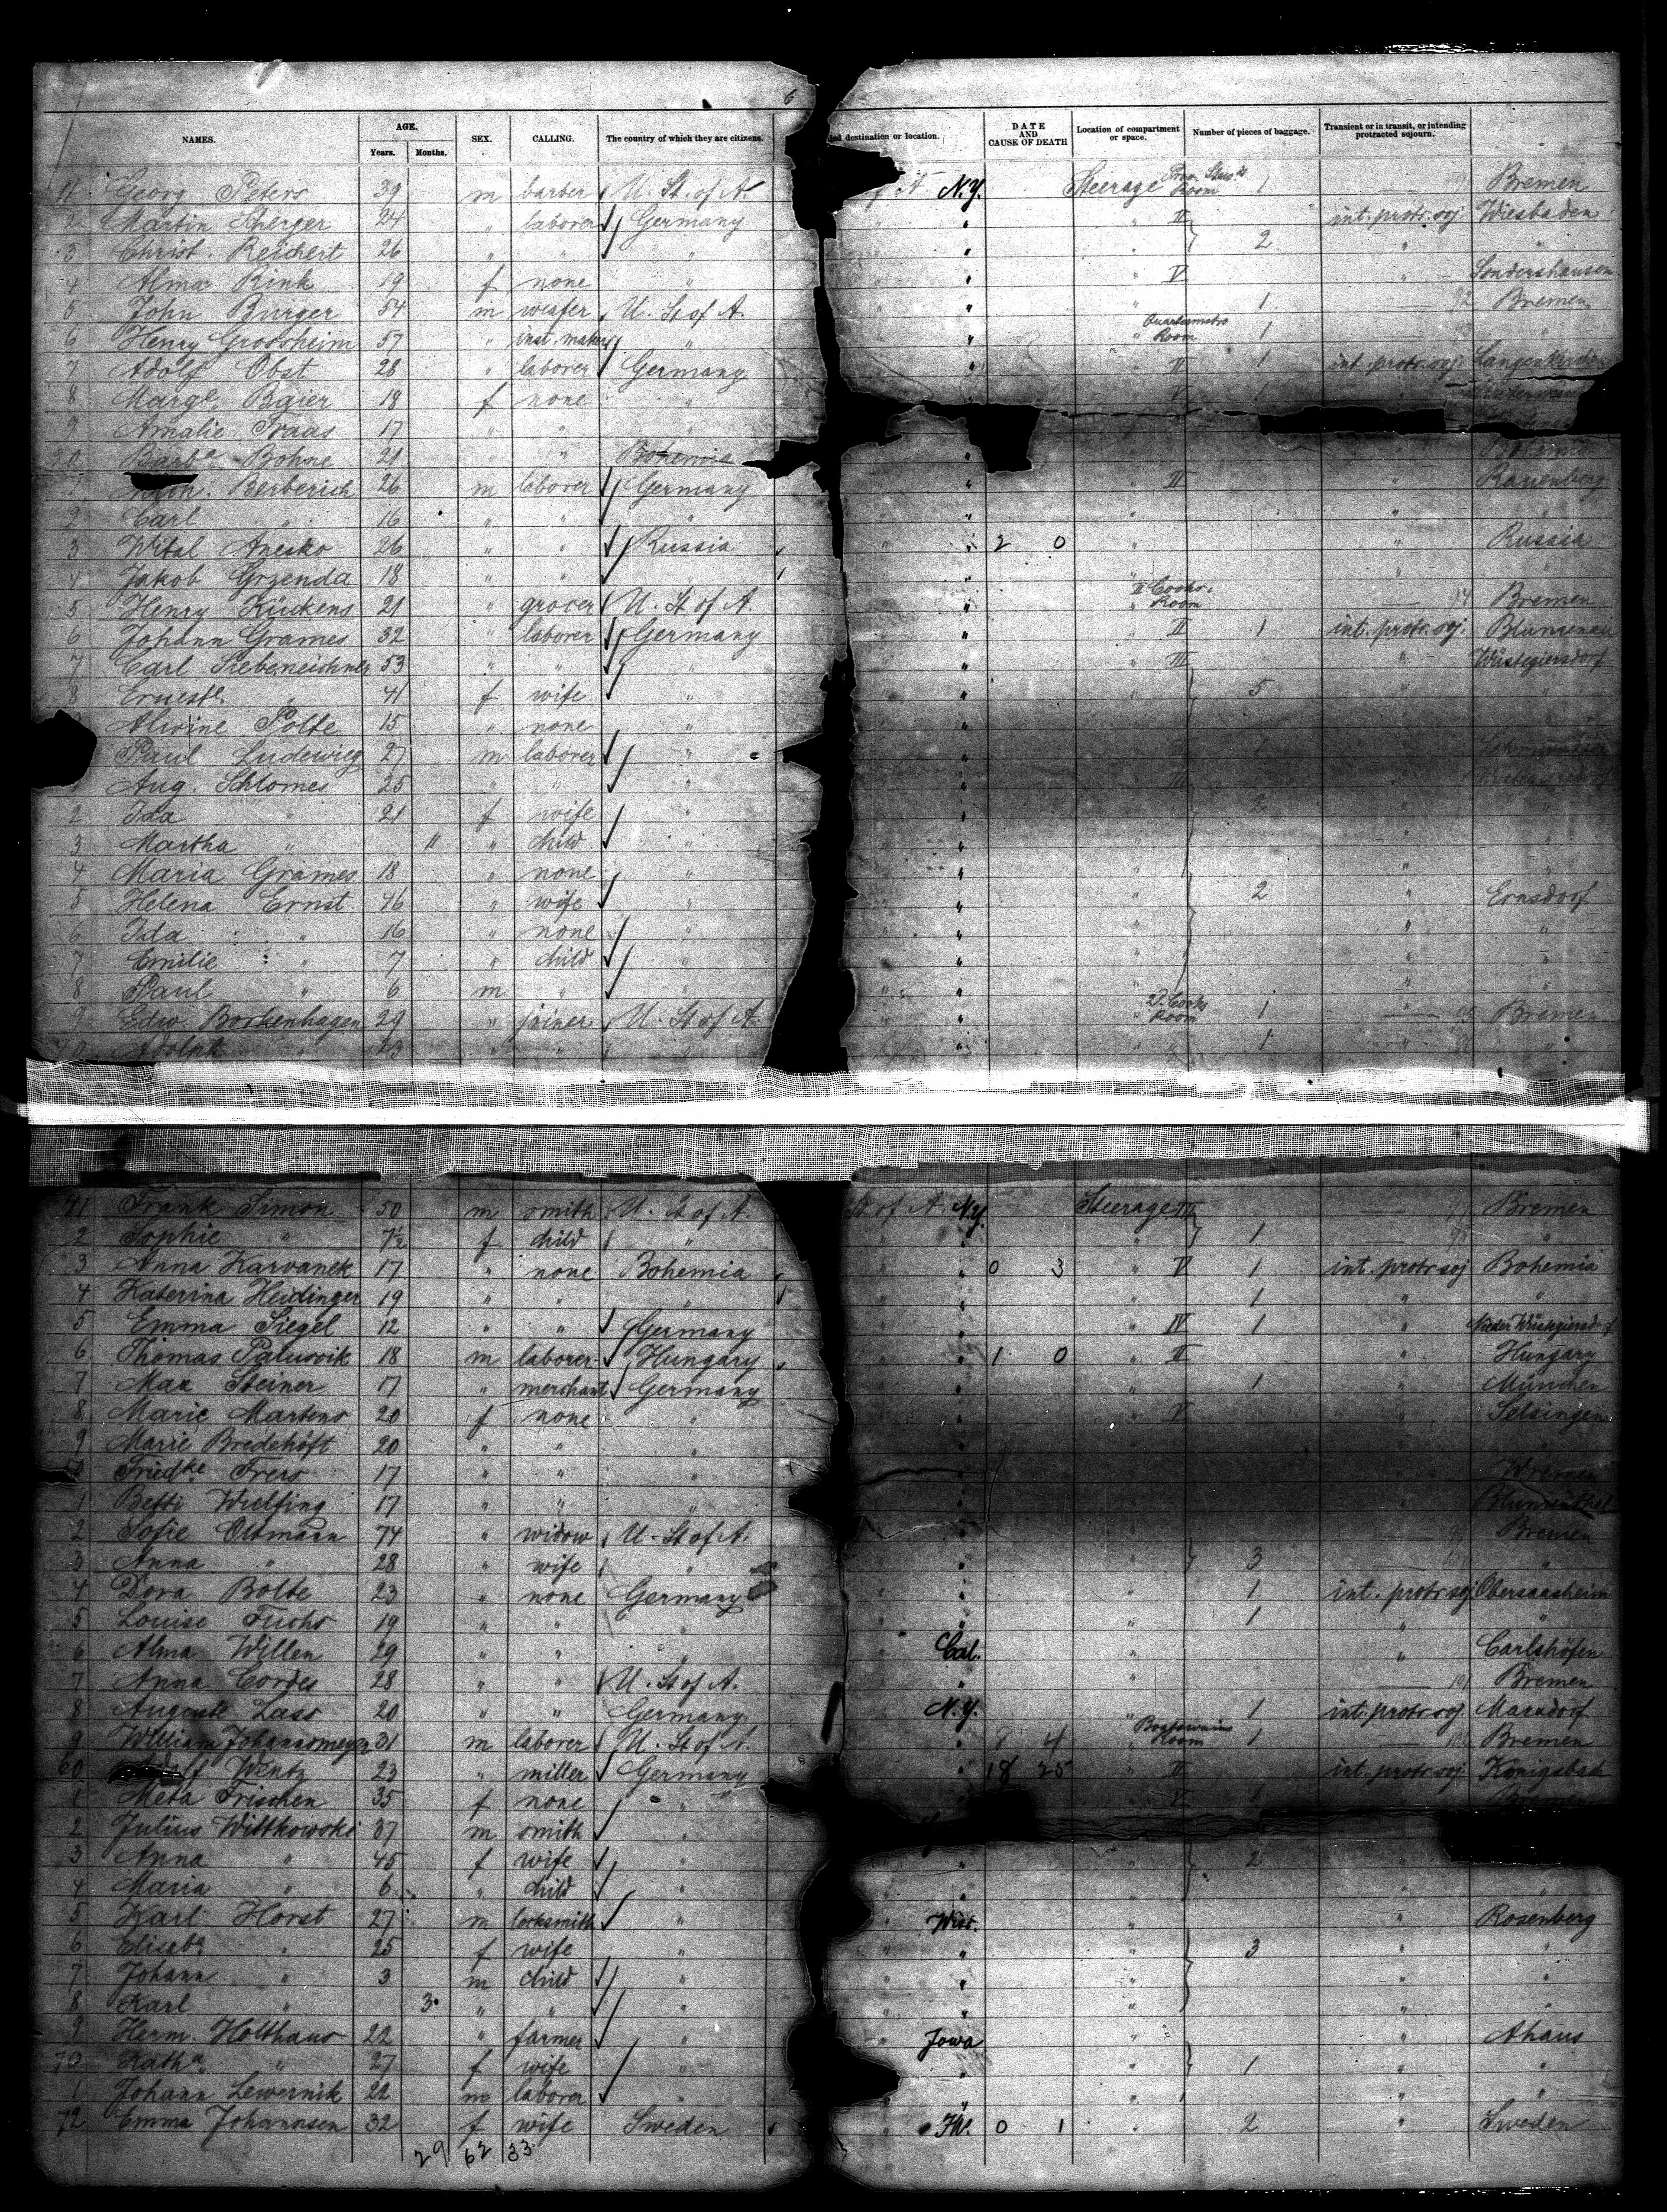 6
NAMES. AGE. Years. Months. SEX. CALLING. The country of which they are citizens. ded destination or location. DATE AND CAUSE OF DEATH Location of compartment or space. Number of pieces of baggage. Transient or in transit, or intending protracted sojourn.
11 Georg Peters 39 m barber U. St. of A. A N.Y. Steerage Room 1 Bremen
2 Martin Sperger 24 " laborer Germany " " II int. protr. soj. Wiesbaden
3 Christ. Reichert 26 " " " " " 2 " "
4 Almar Rink 19 f none " " " V " Sondershausen
5 John Burger 54 m weafer U. St of A. " " 1 92 Bremen
6 Henry Grodsheim 57 " inst. maker " " Quartermstrs Room 1 "
7 Adolf Obst 28 " laborer Germany " " II 1 int. protr. soj.
8 Margt. Baier 18 f none " " V 1
9 Amalie Fraas 17 " " "
20 Barba Bohne 21 " " Bohemia "
Berberich 26 m laborer Germany " II " Rauenberg
2 Carl " 16 " " " " " " "
3 Wital Anesko 26 " " Russia " 2 0 " " Russia
4 Jakob Grzenda 18 " " " " " " "
5 Henry Kückens 21 " grocer U. St of A. " " II Cooks Room 94 Bremen
6 Johann Grames 32 " laborer Germany " " II 1 int. protr. soj. Blumenau
7 Carl Siebeneichner 53 " " " " " III " Wüstegiersdorf
8 Ernestl. " 41 f wife " " " 5 " "
Alwine Polte 15 " none " "
Paul Ludewieg 27 m laborer " " 1
Aug. Schlomes 25 " " " " III
2 Ida " 21 f wife " " 2 "
3 Martha " 11 " child " " " "
4 Maria Grames 18 " none " " " "
5 Helena Ernst 46 " wife " " " 2 " Ernsdorf
6 Ida " 16 " none " " " " "
7 Emilie " 7 " child " " " " "
8 Paul " 6 m " " " " " "
9 Edw. Borkenhagen 29 " joiner U. St of A. " " 2. Cooks Room 1 95 Bremen
40 Adolph " 23 " " " " " 1 "
41 Frank Simon 50 m smith U. St of A. St of A. N.Y. Steerage III Bremen
2 Sophie " 7½ f child " " " 1 98 "
3 Anna Karvanek 17 " none Bohemia " 0 3 " V 1 int. protr soj Bohemia
4 Katerina Heidinger 19 " " " " " 1 " "
5 Emma Siegel 12 " " Germany " " IV 1 " Nieder Wüstegiersdorf
6 Thomas Paluscik 18 m laborer Hungary " 1 0 " II " Hungary
7 Max Steiner 17 " merchant Germany " " 1 " München
8 Marie Martens 20 f none " " " V " Selsingen
9 Marie Bredehöft 20 " " " "
Friedke Frers 17 " " " " Wremen
1 Betti Wulfing 17 " " " " Blumenthal
2 Sofie Oltmann 74 " widow U. St of A. " Bremen
3 Anna " 28 " wife " " " 3 "
4 Dora Bolte 23 " none Germany " " 1 int. protr soj Obersaasheim
5 Louise Fuchs 19 " " " " " 1 " "
6 Alma Willen 29 " " " Cal. " " Carlshöfen
7 Anna Cordes 28 " " U. St of A. " " 101 Bremen
8 Auguste Lass 20 " " Germany N.Y. " 1 int. protr soj. Marndorf
9 William Johannsmeyer 31 m laborer U. St of A. 9 4 " Boatswain Room 1 Bremen
60 Wentz 23 " miller Germany " 18 25 " II int. protr soj Königsbach
1 Meta Frischen 35 f none " " V 1
2 Julius Wittkowski 37 m smith "
3 Anna " 45 f wife " " " 2 "
4 Maria " 6 " child " " " " "
5 Karl Horst 27 m locksmith " Wisc. " " Rosenberg
6 Elisaba " 25 f wife " " " 3 " "
7 Johann " 3 m child " " " " "
8 Karl " 3 " " " " " " "
9 Herm. Holthaus 22 " farmer " Jowa " " Ahaus
70 Katha " 27 f wife " " " 1 " "
1 Johann Lewernik 22 m laborer " " " " "
72 Emma Johannsen 32 f wife Sweden Ill. 0 1 " 2 " Sweden
29 62 33